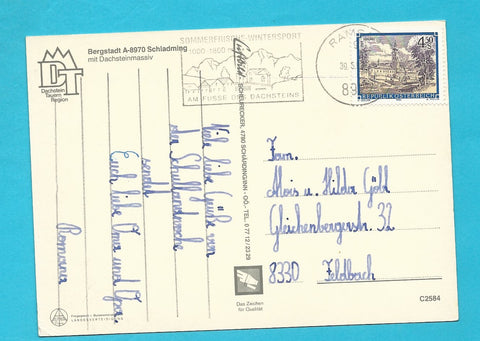 Bergstadt A-8970 Schladming
mit Dachsteinmassiv
DT
Dachstein
Tauern
Region
SOMMERFRISCHE WINTERSPORT
AM FUSSE DES DACHSTEINS
RAMS
4.50
REPUBLIK ÖSTERREICH
4780 SCHÄRDING/INN - OÖ. - TEL. 0 77 12 / 23 29
Viele liebe Grüße von
der Schullandwoche
sendet
Euch liebe Oma und Opa.
Romana
Fam.
Alois u. Hilda Göbl
Gleichenbergerstr. 32
8330 Feldbach
Das Zeichen
für Qualität
C2584